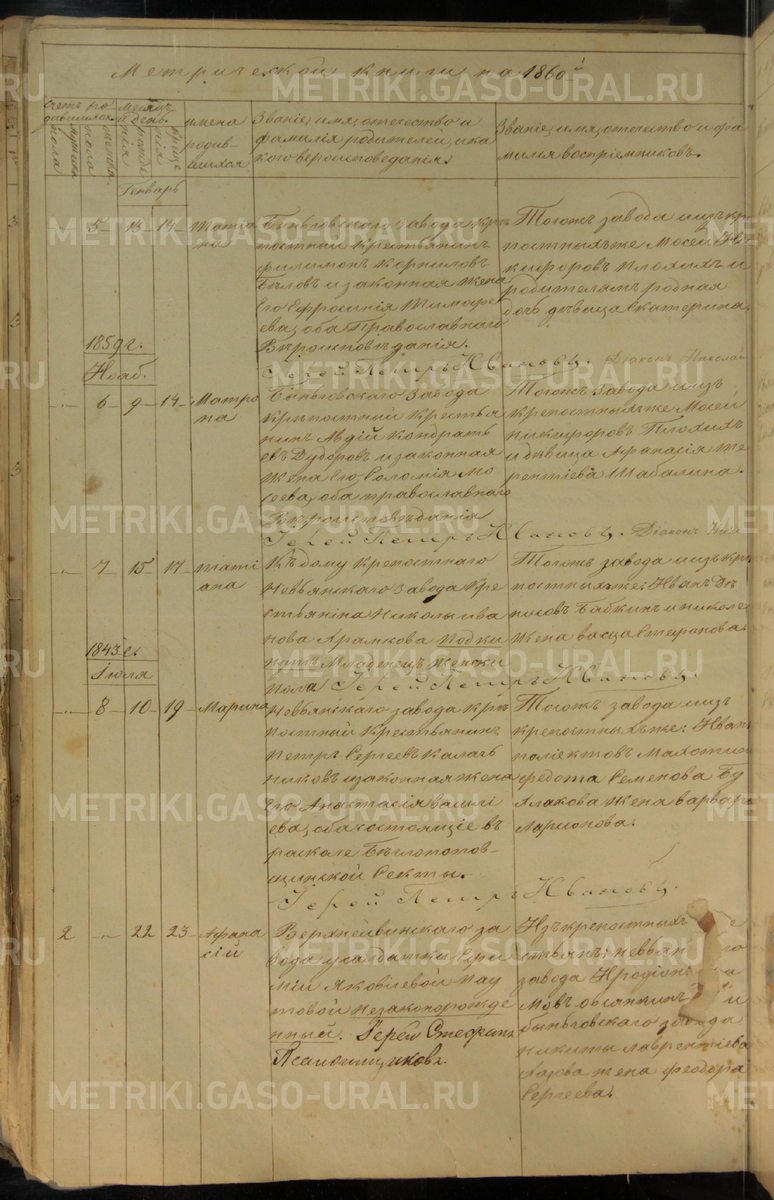 Метрической книги на 1860й
Счетъ ро
дившихся
мужска
пола
женска
пола
месяцъ
и день
рожде
нія
креще
нія
имена
родив-
шихся
Званіе, имя, отечество и
фамилія родителей, и ка
кого вероисповеданія.
Званіе, имя, отечество и фа
милія воспріемниковъ.
Генварь
5 13 14 Татіа
на
Быньговскаго завода крѣ
постной крестьянинъ
Филимонъ Корниловъ
Бѣловъ и законная жена
его Ефросинія Тимофе
ева, оба Православнаго
Вѣроисповѣданія.
Тогожъ завода изъ кр
постныхъ же Мосей Ни
кифоровъ Плохихъ и
родителямъ родная
дочь дѣвица Екатерина.
Іерей Петръ Ивановъ. Діаконъ Николай
1859 г.
Нояб.
6 9 14 Матро
на
Быньговскаго завода
Крѣпостный крестья
нинъ Авдій Кондрать
евъ Дудоровъ и законная
жена его Соломія Мо
сеева, оба православнаго
Вѣроисповѣданія
Тогожъ завода изъ
крепостныхъ же Мосей
Никифоровъ Плохихъ
и дѣвица Афанасія Те
рентіева Шабалина.
Іерей Петръ Ивановъ. Діаконъ Ник
7 15 17 татіи
ана
Къ дому крепостнаго
Невьянскаго завода кре
стьянина Николы Ива
нова Храмкова Подки
нутъ Младенецъ Женски
пола Іерей Петръ Ивановъ.
Тогожъ завода изъ кр
постныхъ же: Иванъ Де
нисовъ Бабкинъ и николе
жена васса Стефанова.
1843 г.
Іюля
8 10 19 Марина
Невьянскаго завода крѣ
постный Крестьянинъ
Петръ Сергеевъ Калачь
никовъ и законная жена
его Анастасія васил
ева, оба состоящіе въ
расколе Бѣглопопов-
щинской секты.
Тогожъ завода изъ
крепостныхъ же: Иван
поліектовъ Махотин
Федота Семенова Бу
лакова жена варвара
Ларионова.
Іерей Петръ Ивановъ.
2 22 23 Афана
сій
Верхнейвинскаго за
вода у солдатки
Яковлевой Пау
товой незаконорожде
нный. Іерей Стефанъ
Псаломщиковъ.
Изъ крепостныхъ
стьянъ: невьян го
завода Иродіон
мовъ и
быньговскаго завода
никиты лаврентіева
жена феодора
Сергеева.
METRIKI.GASO-URAL.RU